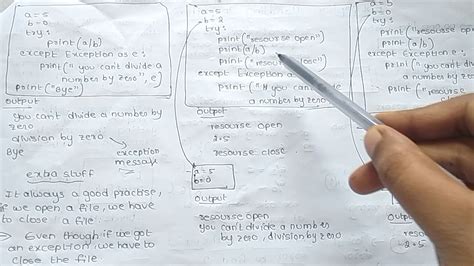 a = 5
b = 0
try:
print(a/b)
except Exception as e:
print("you can't divide a
number by zero", e)
print("Bye")
output
you can't divide a number by
zero
division by zero
Bye
exception
message
extra stuff
It always a good practise,
if we open a file, we have to
close a file.
Even though if we got
an exception, we have to
close the file.
a = 5
b = 2
try:
print("resourse open")
print(a/b)
print("resourse close")
except Exception
print("you can't divide
a number by zero
Output
resourse open
2.5
resourse close
a = 5
b = 0
Output
resourse open
you can't divide a number
by zero, division by zero
a = 5
b = 0
try:
print("resourse open
print(a/b)
except Exception e:
print("
by zero
print("resour
Output
resourse
resourse
2.5